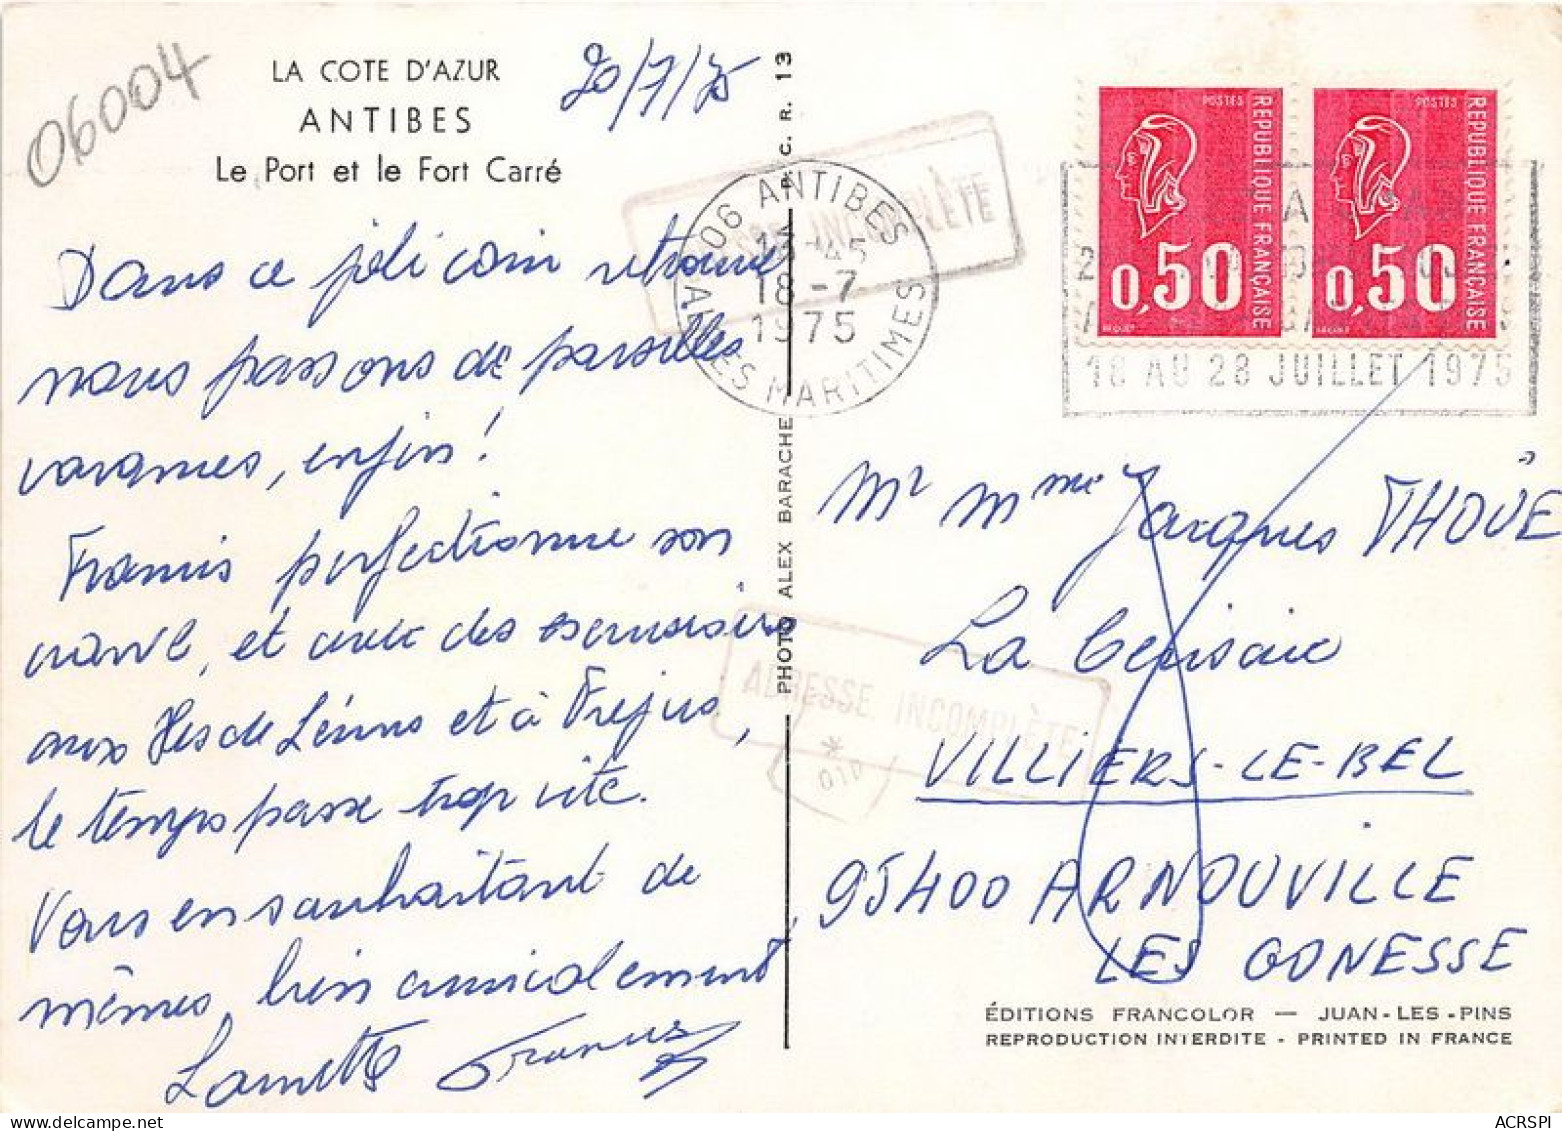 06004
LA COTE D'AZUR
ANTIBES
Le Port et le Fort Carré
20/7/75
Dans ce joli coin retrouvé
nous passons de pareilles
vacances, enfin!
Francis perfectionne son
navil, et avec des excursions
aux Iles de Lérins et à Fréjus,
le temps passe trop vite.
Vous en souhaitant de
mêmes, bien amicalement
Francis
C. R. 13
PHOTO ALEX BARACHE
06 ANTIBES
13-45
18-7
1975
ALPES MARITIMES
ADRESSE INCOMPLÈTE
POSTES
REPUBLIQUE FRANÇAISE
0,50
POSTES
REPUBLIQUE FRANÇAISE
0,50
18 AU 28 JUILLET 1975
Mr Mme Jacques THOÜE
La Cerisaie
VILLIERS-LE-BEL
95400 ARNOUVILLE
LES GONESSE
ADRESSE INCOMPLÈTE
*
010
ÉDITIONS FRANCOLOR — JUAN-LES-PINS
REPRODUCTION INTERDITE - PRINTED IN FRANCE
ACRSPI